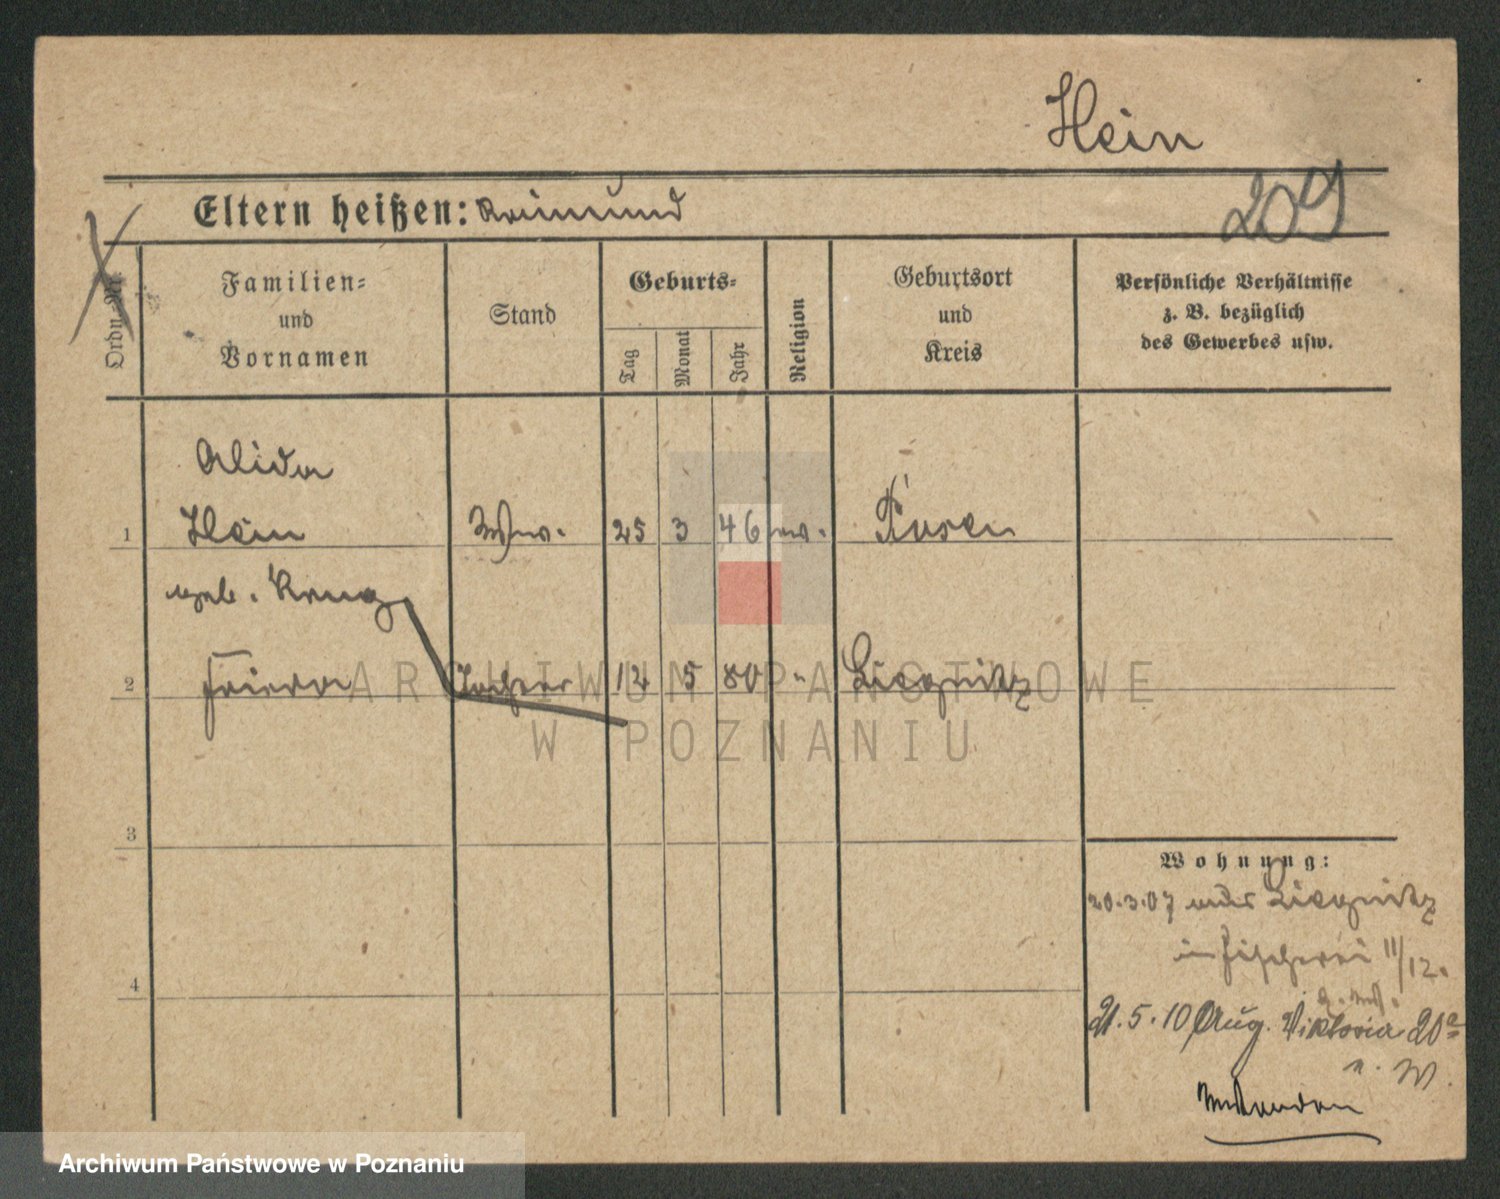 Hein
Eltern heißen: Raimund
209
Ordn. Nr.
Familien-
und
Vornamen
Stand
Geburts-
Tag
Monat
Jahr
Religion
Geburtsort
und
Kreis
Persönliche Verhältnisse
z. B. bezüglich
des Gewerbes usw.
Alida
1 Hein Ww. 25 3 46 ev. Posen
geb. Krug
2 Frieda Tochter 12 5 80 " Liegnitz
3
4
Wohnung:
20.3.07 aus Liegnitz
in Fischerei 11/12.
21.5.10 Aug. Viktoria 20a
n. W.
ARCHIWUM PAŃSTWOWE
W POZNANIU
Archiwum Państwowe w Poznaniu